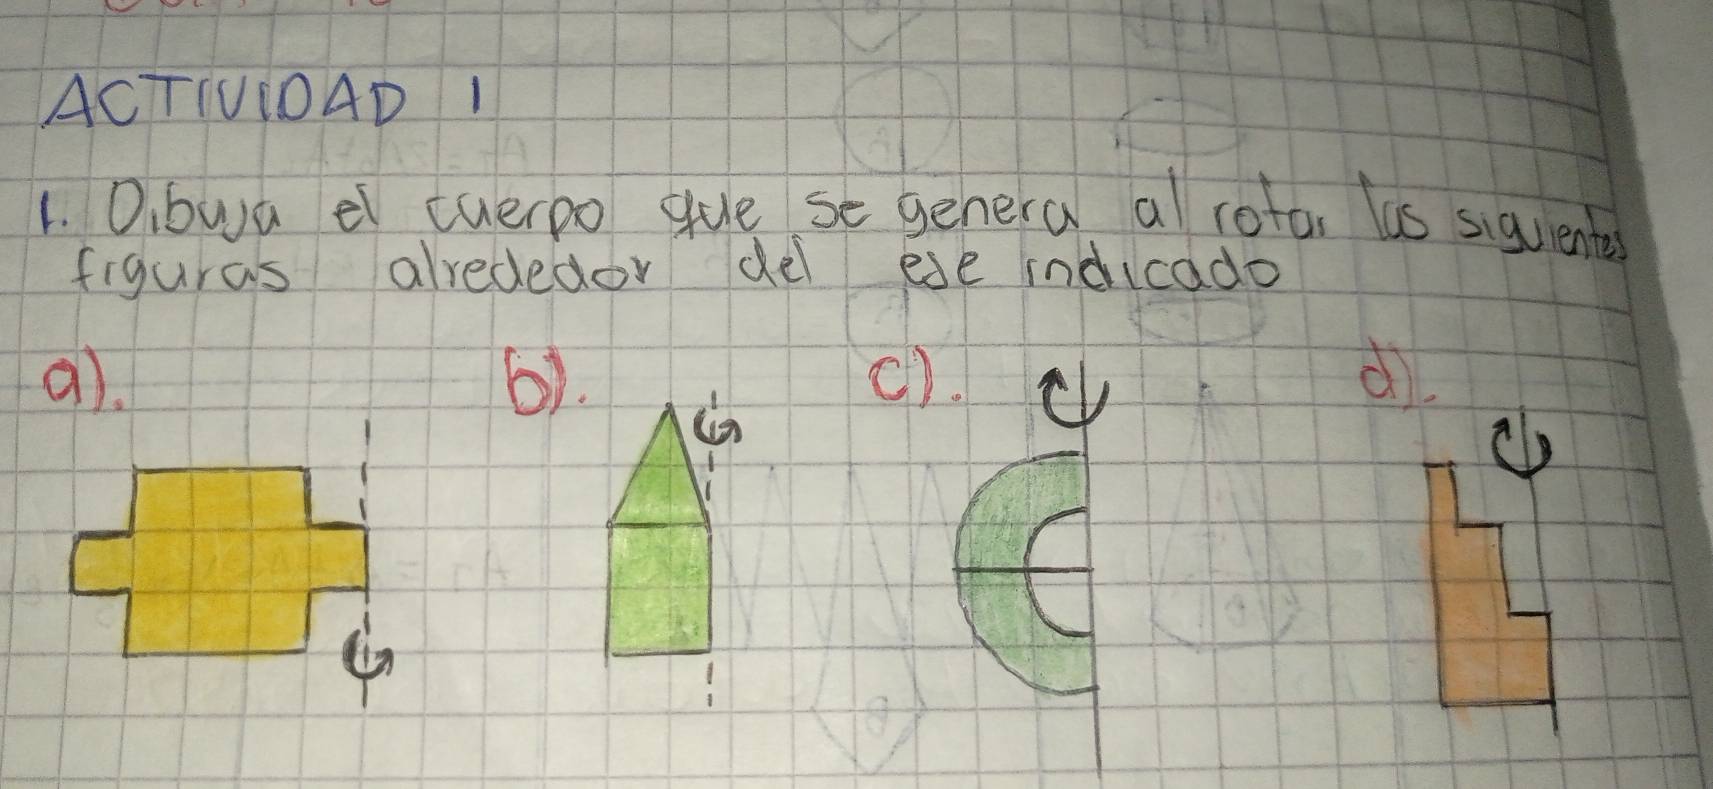 ACTIVIDAD 1
1. Dibuja el cuerpo que se genera al rotar las siguientes
figuras alrededor del eje indicado
a). b). c). d).